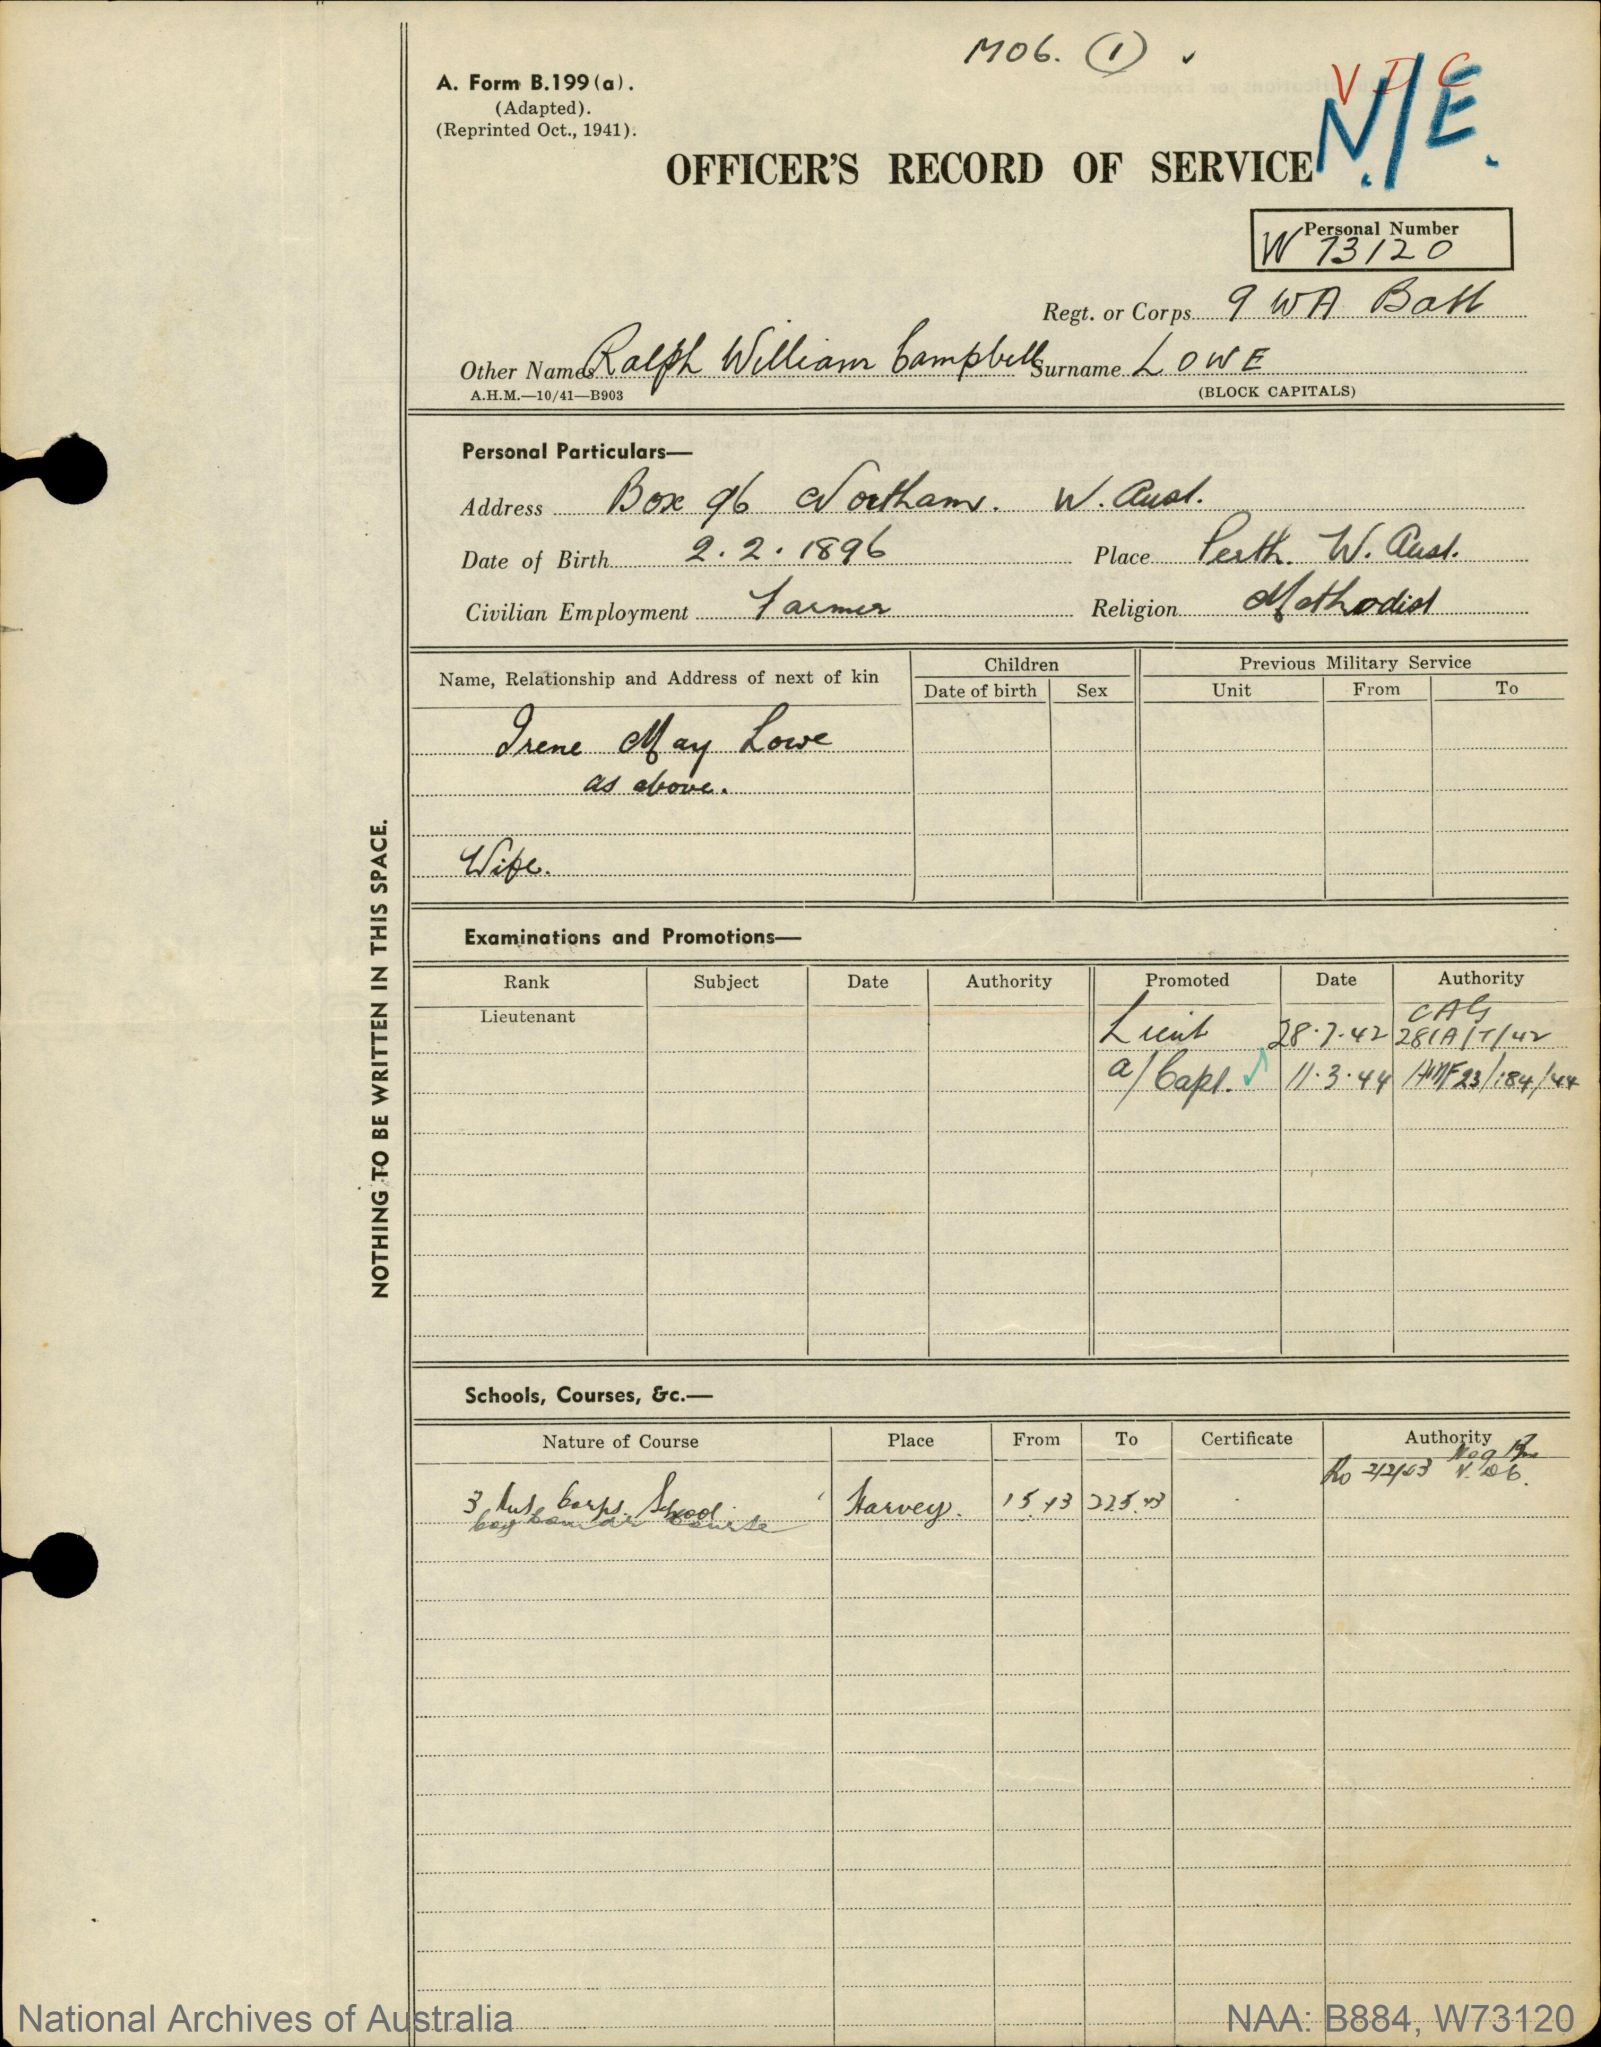 MOB. (1) ✓
V D C
N/E.
A. Form B.199 (a).
(Adapted).
(Reprinted Oct., 1941).
OFFICER'S RECORD OF SERVICE
Personal Number
W 73120
Regt. or Corps 9 WA Batt
Other Names Ralph William Campbell Surname LOWE
A.H.M.—10/41—B903 (BLOCK CAPITALS)
Personal Particulars—
Address Box 96 Northam. W. Aust.
Date of Birth 2.2.1896 Place Perth. W. Aust.
Civilian Employment Farmer Religion Methodist
Name, Relationship and Address of next of kin Children Previous Military Service
Date of birth Sex Unit From To
Irene May Lowe
as above.
Wife.
NOTHING TO BE WRITTEN IN THIS SPACE.
Examinations and Promotions—
Rank Subject Date Authority Promoted Date Authority
Lieutenant
CAG
Lieut 28.7.42 281A/T/42
a/Capt. ✓ 11.3.44 23/184/44
Schools, Courses, &c.—
Nature of Course Place From To Certificate Authority
Ro 2/2/43 V.D.C.
3 Aus Corps. School Harvey. 1 5 43 22 5 43
Course
National Archives of Australia NAA: B884, W73120